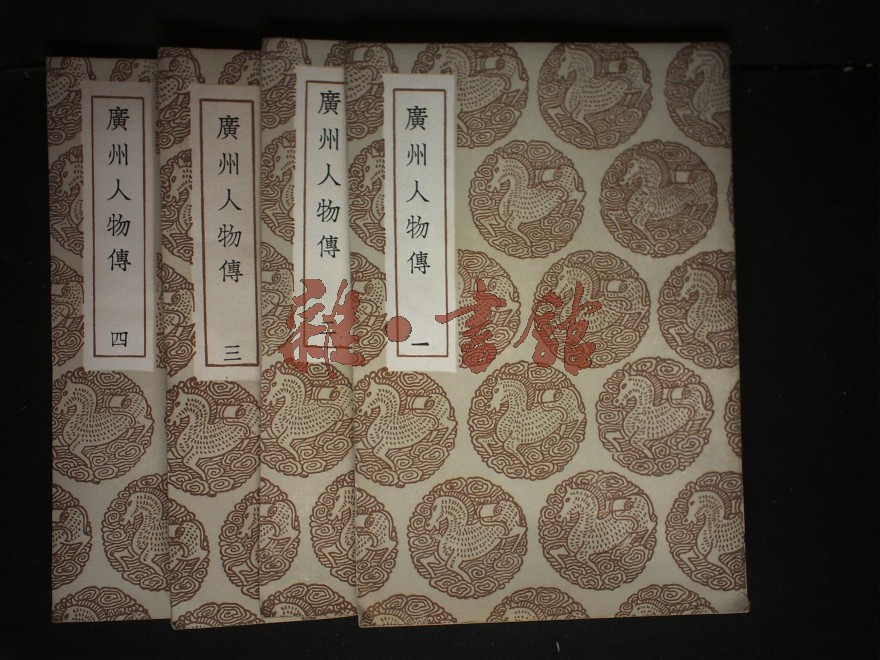 廣州人物傳 四
廣州人物傳 三
廣州人物傳 二
廣州人物傳 一
雜·書館